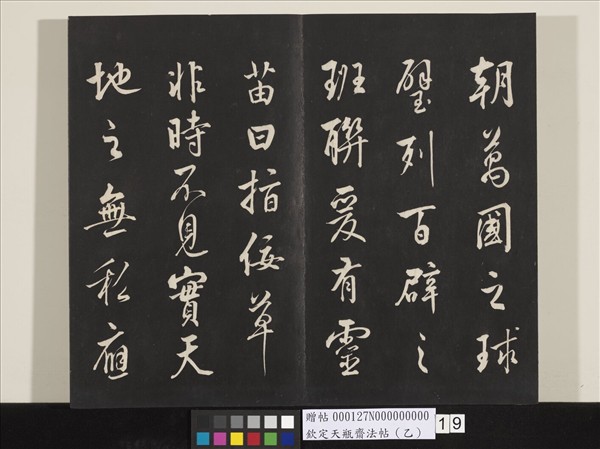 朝萬國之球
璧列百辟之
班聯爰有靈
苗曰指佞草
非時不見實天
地之無私應
贈帖 000127N000000000
欽定天瓶齋法帖（乙）
19